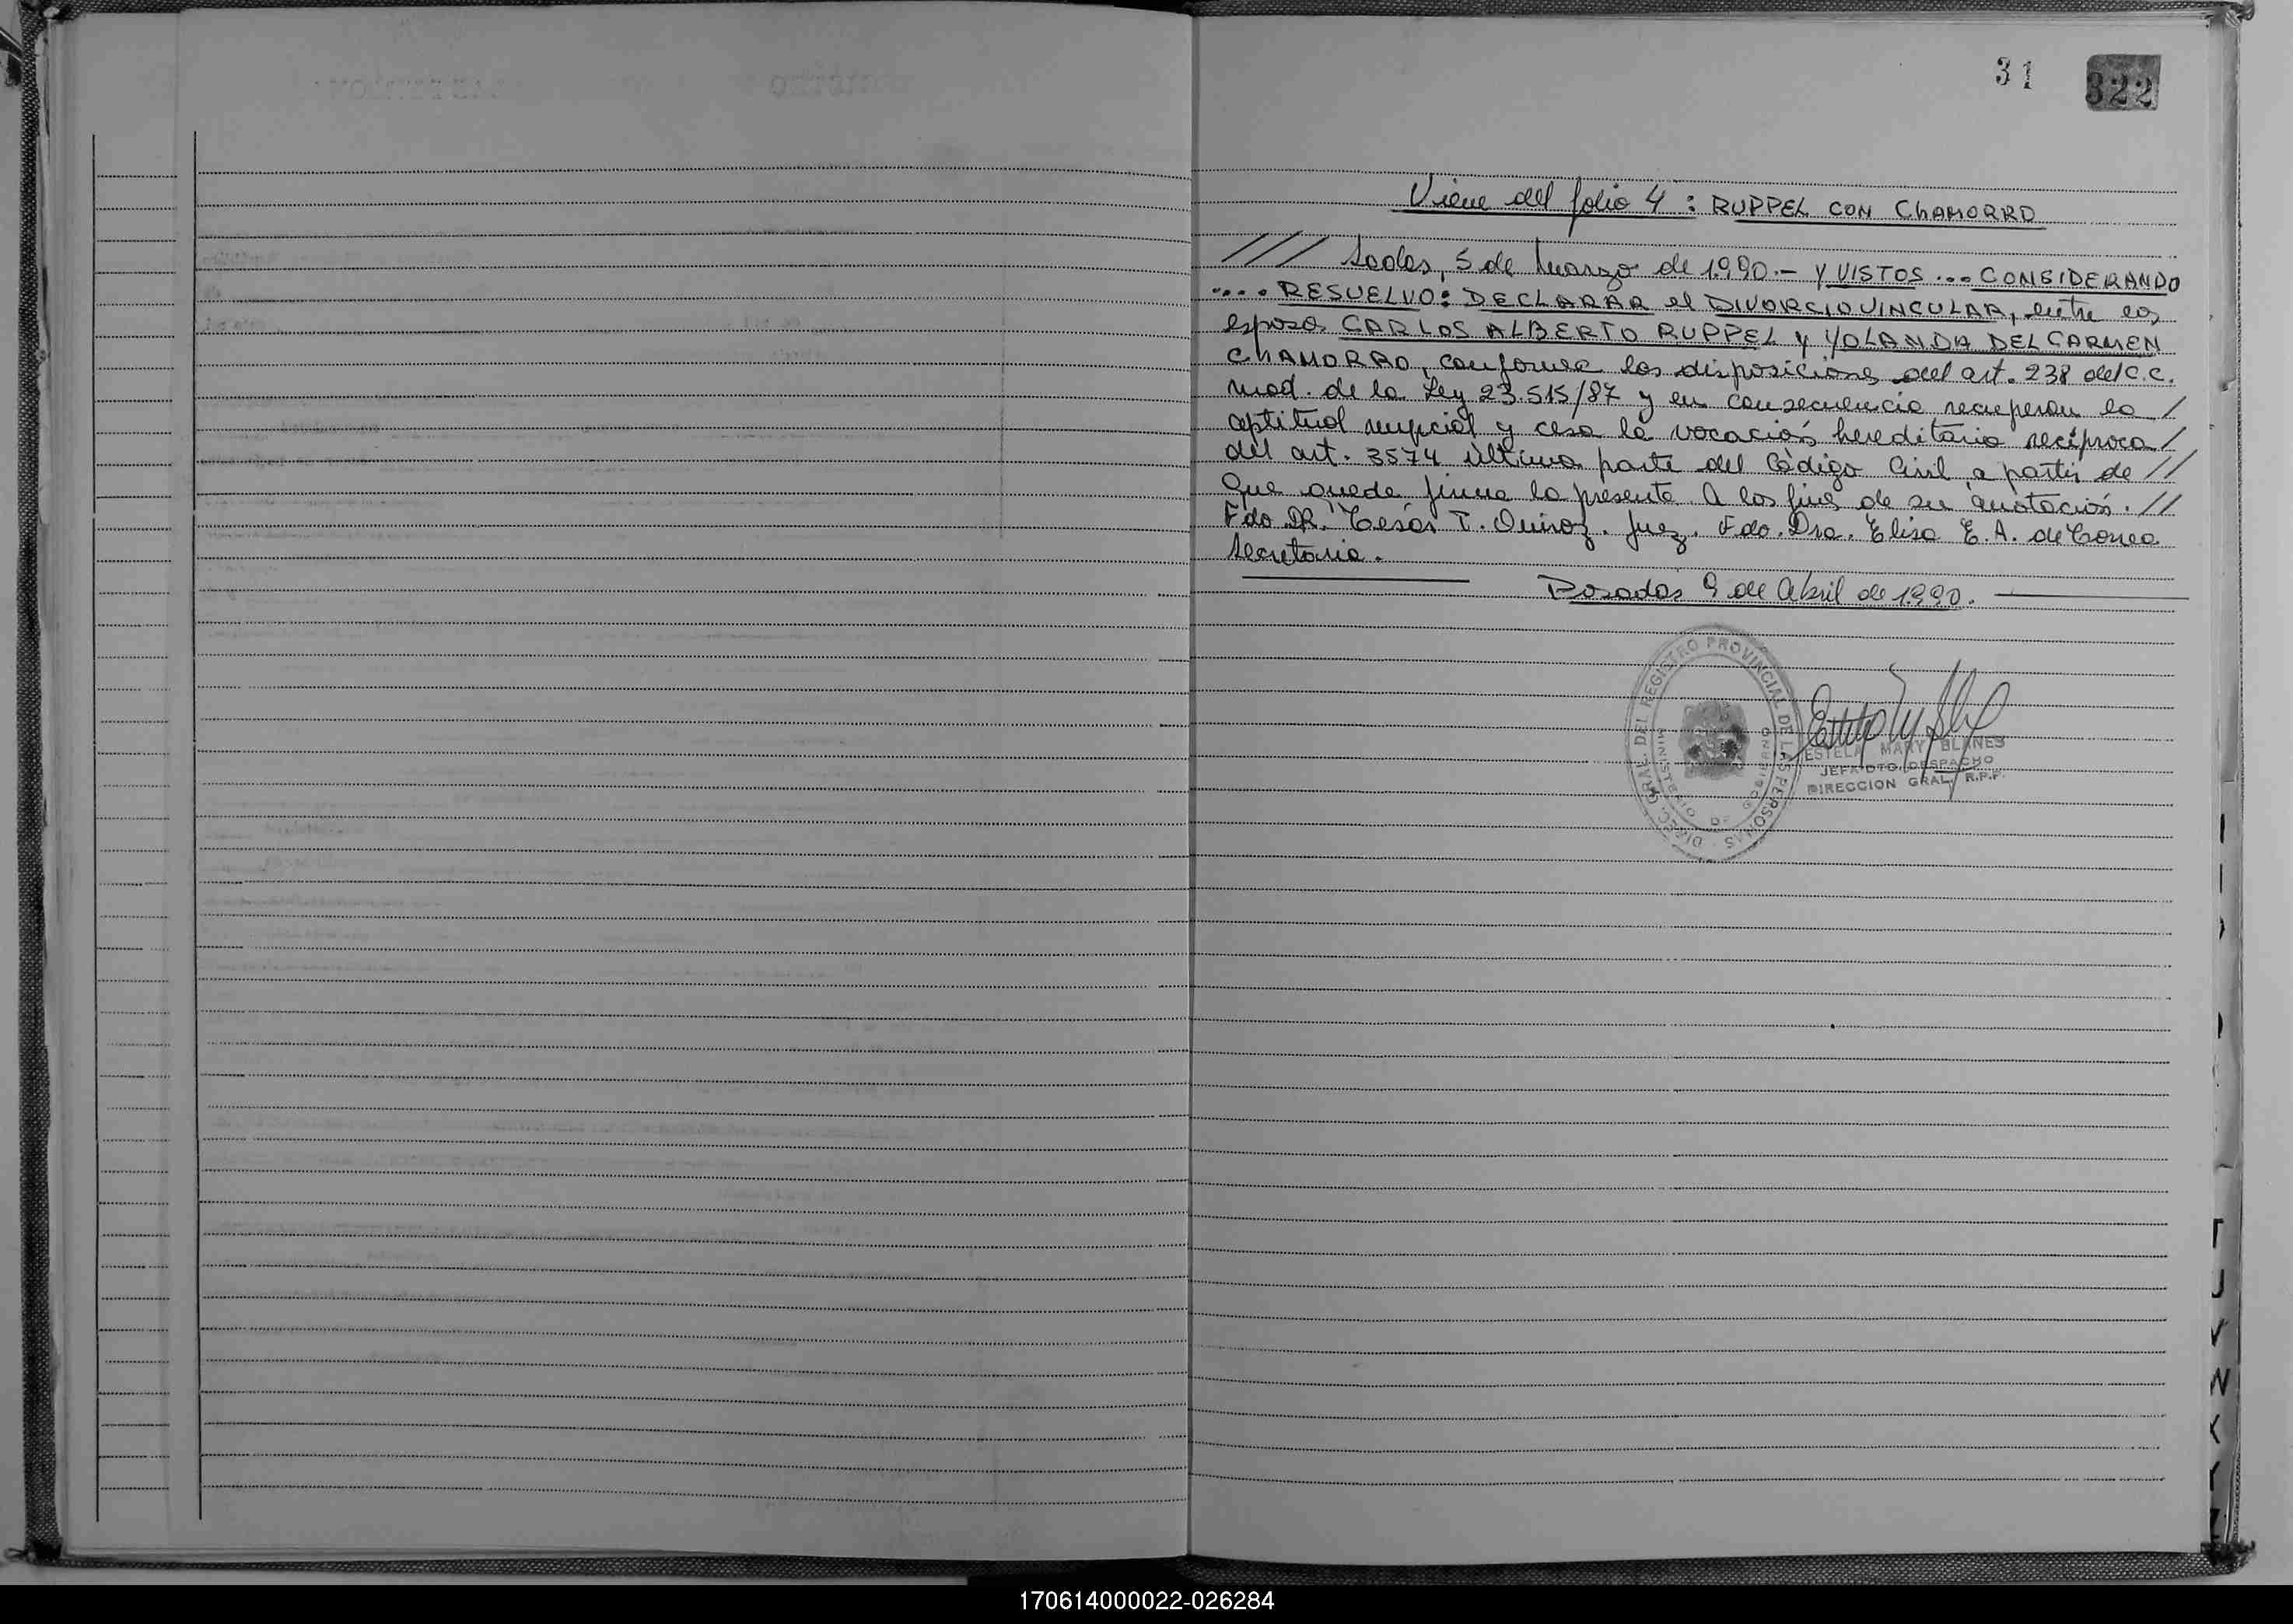 31 322
Viene del folio 4 : RUPPEL CON CHAMORRO
/// sadas, 5 de marzo de 1990.- Y VISTOS ... CONSIDERANDO
.... RESUELVO: DECLARAR el DIVORCIO VINCULAR, entre los
esposos CARLOS ALBERTO RUPPEL y YOLANDA DEL CARMEN
CHAMORRO, conforme las disposiciones del art. 238 del C.C.
mod. de la Ley 23.515/87 y en consecuencia recuperan la /
aptitud nupcial y cesa la vocación hereditaria recíproca /
del art. 3574 última parte del Código Civil, a partir de //
que quede firme la presente. A los fines de su anotación. //
Fdo. DR. Cesar T. Quiroz. Juez. Fdo. Dra. Elisa E. A. de Correa
Secretaria.
Posadas 9 de Abril de 1990.
DIREC. GRAL. DEL REGISTRO PROVINCIAL DE LAS PERSONAS
MINISTERIO DE GOBIERNO
ESTELA MARY BLANES
JEFA DTO. DESPACHO
DIRECCION GRAL. R.P.P.
T
U
V
W
X
Y
Z
170614000022-026284